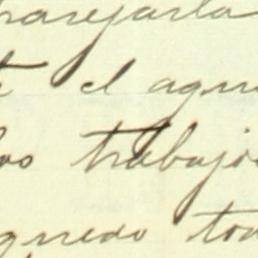 parejarla
el agu
los trabajo
quedo tod